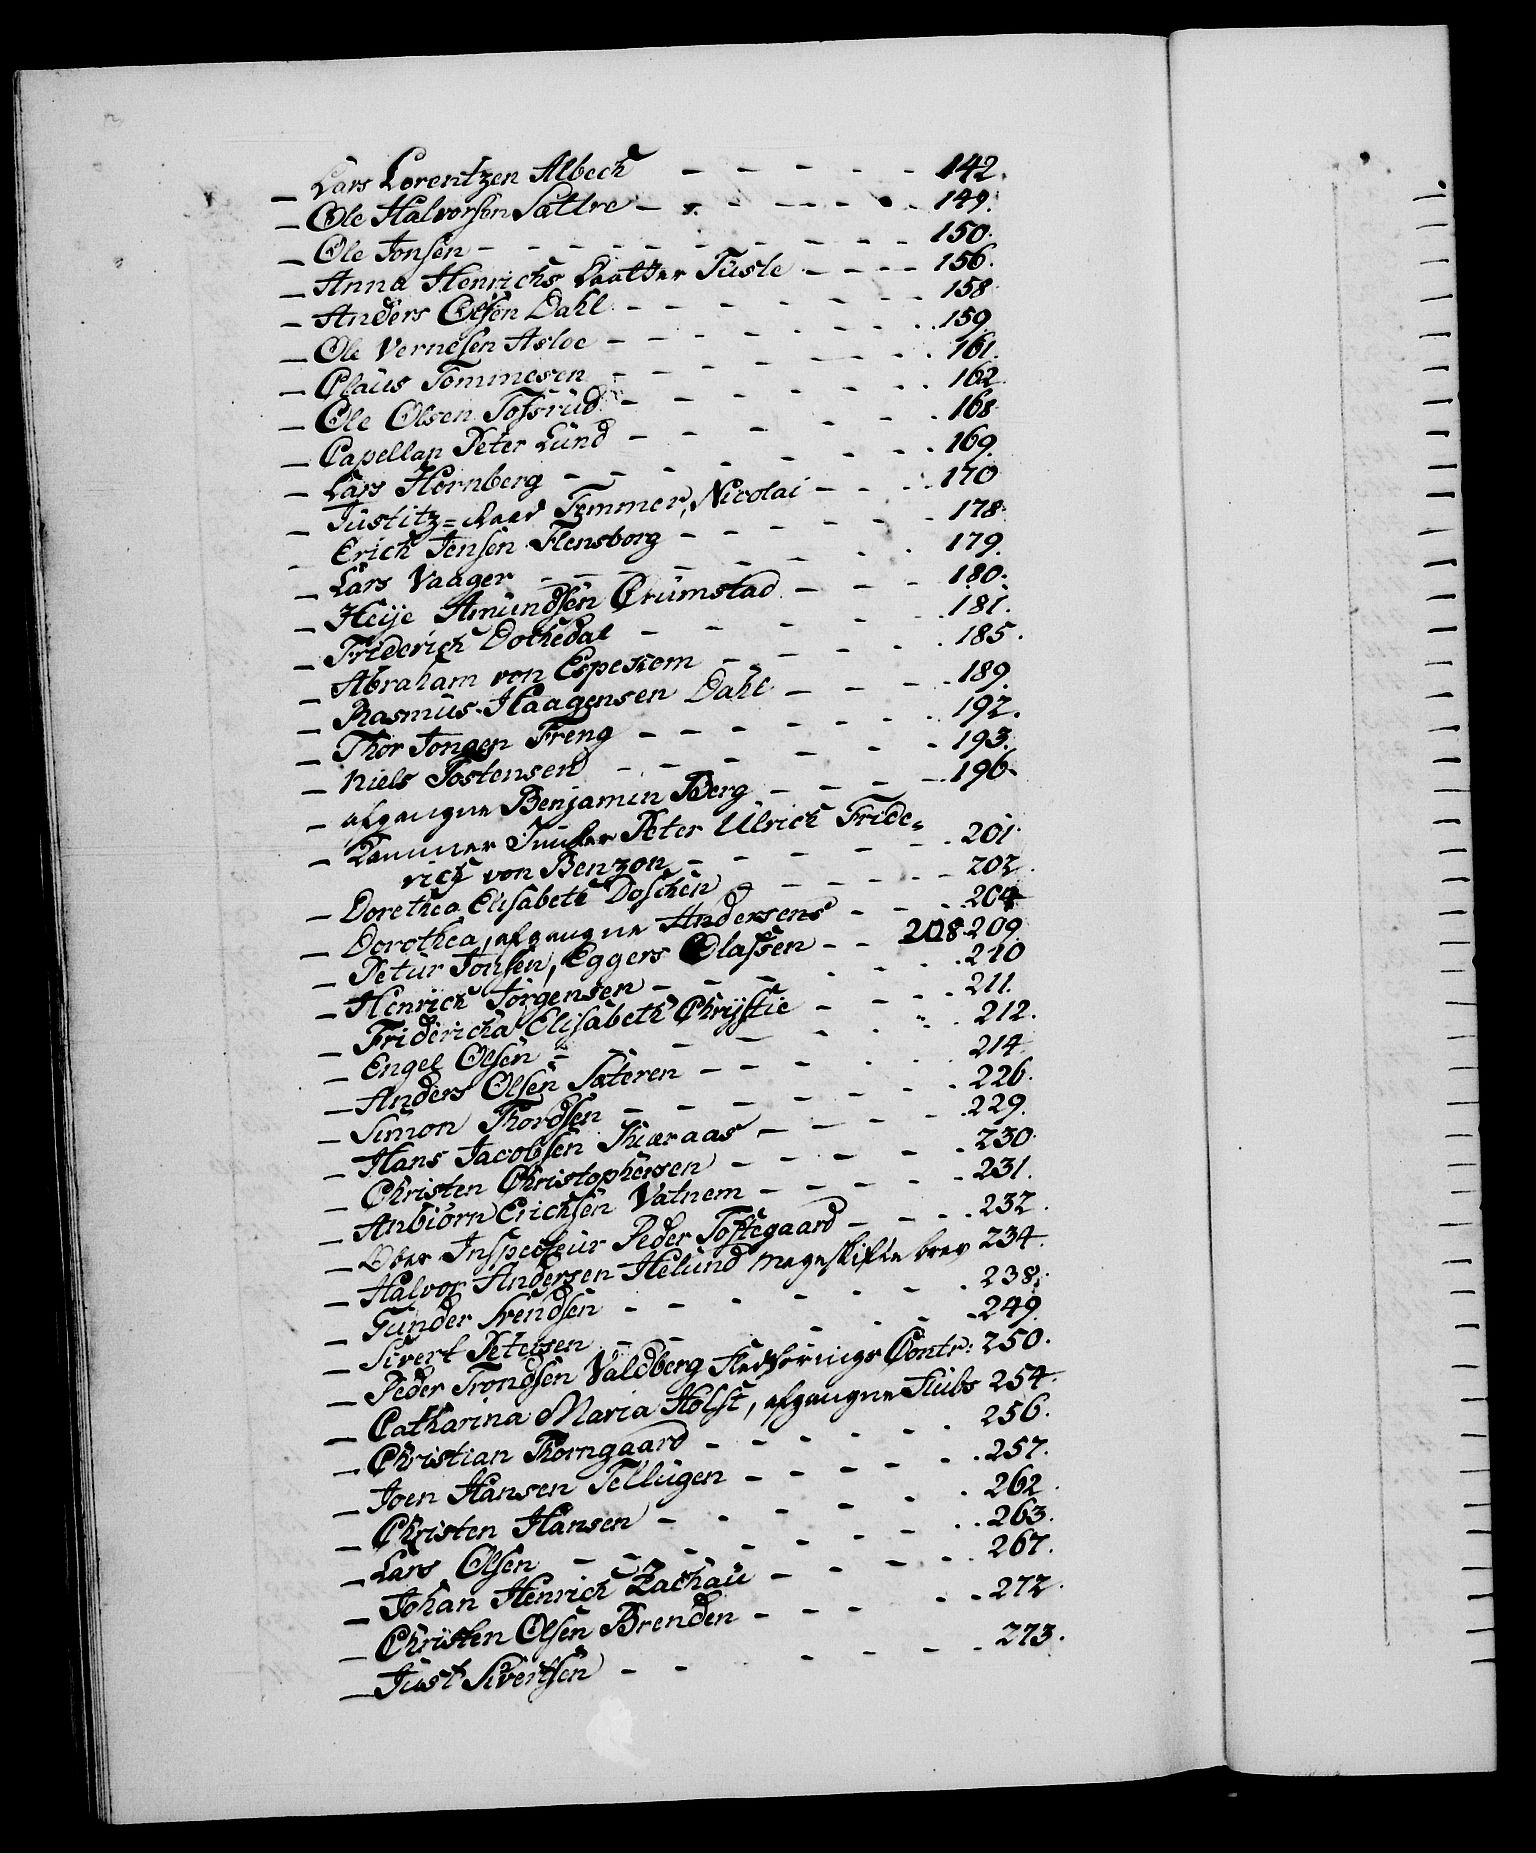 — Lars Lorentzen Albech - - - - - 142.
— Ole Halvorsen Sattre - - - - - 149.
— Ole Jonsen - - - - - - - - 150.
— Anna Henrichs Daatter Tusle - - - - 156.
— Anders Olsen Dahl - - - - - - 158
— Ole Vernesen Asloe - - - - - - 159
— Claus Tommesen - - - - - - 161.
— Ole Olsen Tofsrud - - - - - - 162.
— Capellan Peter Lund - - - - - 168
— Lars Hornberg - - - - - - 169.
— Justitz=Raad Temmer, Nicolai - - - 170
— Erich Jensen Flensborg - - - - - 178.
— Lars Vaager - - - - - - - 179.
— Heije Amundsen Crumstad - - - 180.
— Friderich Dothedal - - - - - 181.
— Abraham von Espekom - - - - 185.
— Rasmus Haagensen Dahl - - - - 189.
— Thor Jongen Freng - - - - - 192.
— Niels Tostensen - - - - - - 193.
— afgangne Benjamin Berg - - - - 196.
— Kammer Junker Peter Ulrich Fride=
rich von Benzon - - - - - - 201.
— Dorethea Elisabeth Doschen - - - - 202
— Dorothea, afgangne Andersens - - - 204
— Petur Jonsen, Eggers Olafsen - - 208 209
— Henrich Jörgensen - - - - - - 210
— Fridericha Elisabeth Chrijstie - - - 211.
— Engel Olsen - - - - - - - 212.
— Anders Olsen Sateren - - - - - 214
— Simon Thordsen - - - - - - 226.
— Hans Jacobsen Thueraas - - - - 229.
— Christen Christophersen - - - - - 230
— Anbiörn Erichsen Vatnem - - - - - 231.
— Ober Inspecteur Peder Toftegaard - - - - 232.
— Halvor Andersen Helund Mageskifte brev 234.
— Gunder Svendsen - - - - - - 238.
— Sivert Petersen - - - - - - 249.
— Peder Trondsen Valdberg Contr: 250.
— Catharina Maria Holst, afgangne Fiubs 254.
— Christian Thorngaard - - - - - - 256.
— Joen Hansen Tellugen - - - - - - 257.
— Christen Hansen - - - - - - 262.
— Lars Olsen - - - - - - - 263.
— Johan Henrich Zachau - - - - - 267.
— Christen Olsen Brenden - - - - - 272.
— Just Sivertsen - - - - - - 273.